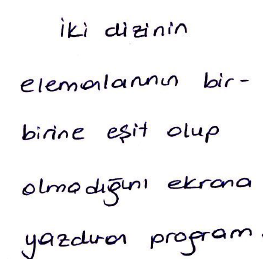 iki dizinin
elemanlarının bir-
birine eşit olup
olmadığını ekrana
yazdıran program.